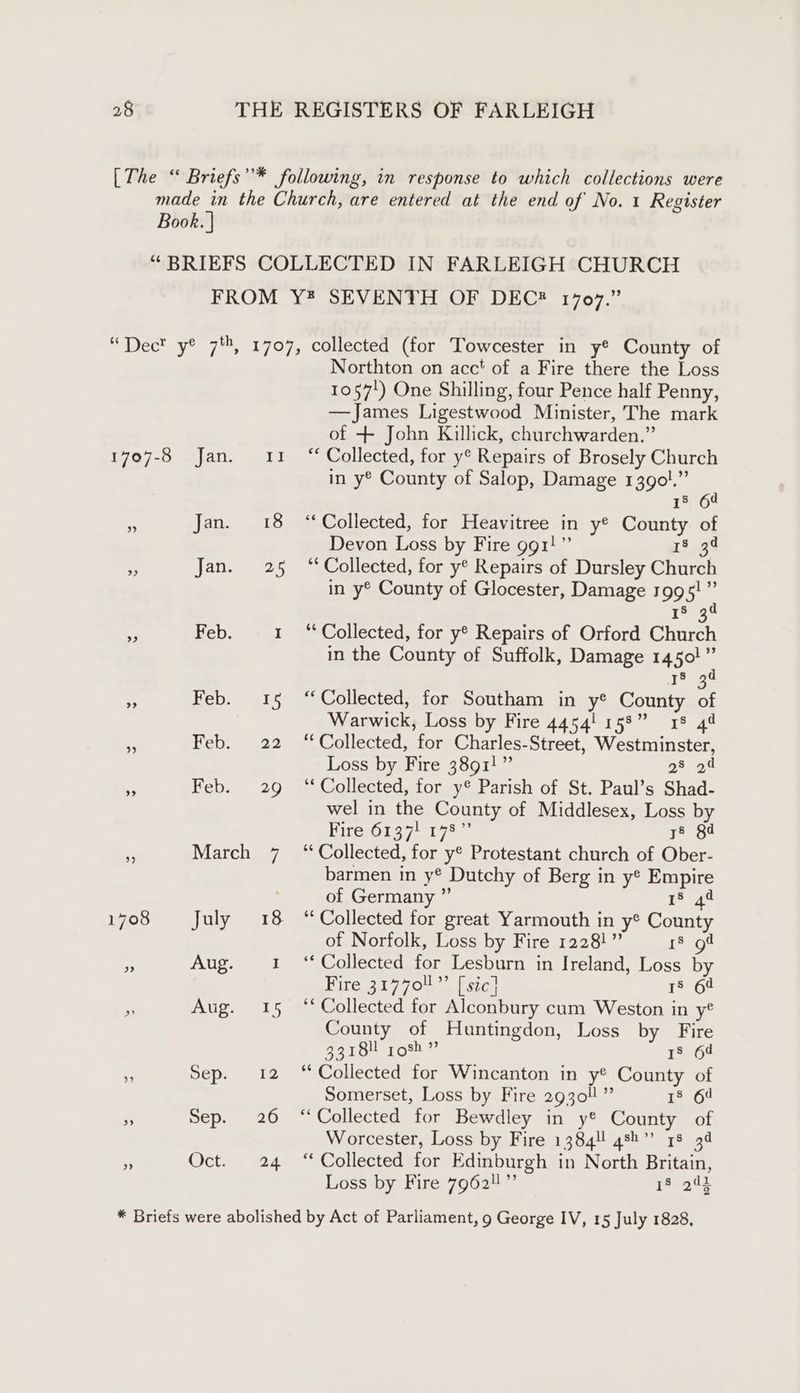 28 THE REGISTERS OF FARLEIGH
[The “Briefs”* following, in response to which collections were
made in the Church, are entered at the end of No. 1 Register
Book.]
“BRIEFS COLLECTED IN FARLEIGH CHURCH
FROM Yᴱ SEVENTH OF DECᴿ 1707.”
“Decʳ yᵉ 7ᵗʰ, 1707, collected (for Towcester in yᵉ County of
Northton on accᵗ of a Fire there the Loss
1057ˡ) One Shilling, four Pence half Penny,
—James Ligestwood Minister, The mark
of + John Killick, churchwarden.”
1707-8 Jan. 11 “Collected, for yᵉ Repairs of Brosely Church
in yᵉ County of Salop, Damage 1390ˡ.”
1ˢ 6ᵈ
„ Jan. 18 “Collected, for Heavitree in yᵉ County of
Devon Loss by Fire 991ˡ” 1ˢ 3ᵈ
„ Jan. 25 “Collected, for yᵉ Repairs of Dursley Church
in yᵉ County of Glocester, Damage 1995ˡ”
1ˢ 3ᵈ
„ Feb. 1 “Collected, for yᵉ Repairs of Orford Church
in the County of Suffolk, Damage 1450ˡ”
1ˢ 3ᵈ
„ Feb. 15 “Collected, for Southam in yᵉ County of
Warwick, Loss by Fire 4454ˡ 15ˢ” 1ˢ 4ᵈ
„ Feb. 22 “Collected, for Charles-Street, Westminster,
Loss by Fire 3891ˡ” 2ˢ 2ᵈ
„ Feb. 29 “Collected, for yᵉ Parish of St. Paul’s Shad-
wel in the County of Middlesex, Loss by
Fire 6137ˡ 17ˢ” 1ˢ 8ᵈ
„ March 7 “Collected, for yᵉ Protestant church of Ober-
barmen in yᵉ Dutchy of Berg in yᵉ Empire
of Germany” 1ˢ 4ᵈ
1708 July 18 “Collected for great Yarmouth in yᵉ County
of Norfolk, Loss by Fire 1228ˡ” 1ˢ 9ᵈ
„ Aug. 1 “Collected for Lesburn in Ireland, Loss by
Fire 31770ˡˡ” [sic] 1ˢ 6ᵈ
„ Aug. 15 “Collected for Alconbury cum Weston in yᵉ
County of Huntingdon, Loss by Fire
3318ˡˡ 10ˢʰ” 1ˢ 6ᵈ
„ Sep. 12 “Collected for Wincanton in yᵉ County of
Somerset, Loss by Fire 2930ˡˡ” 1ˢ 6ᵈ
„ Sep. 26 “Collected for Bewdley in yᵉ County of
Worcester, Loss by Fire 1384ˡˡ 4ˢʰ” 1ˢ 3ᵈ
„ Oct. 24 “Collected for Edinburgh in North Britain,
Loss by Fire 7962ˡˡ” 1ˢ 2ᵈ½
* Briefs were abolished by Act of Parliament, 9 George IV, 15 July 1828.